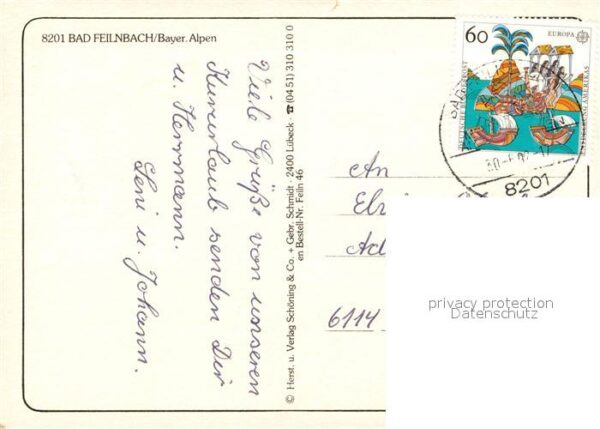 8201 BAD FEILNBACH/Bayer. Alpen
Viele Grüße von unseren
Kururlaub senden Dir
u. Herrmann.
Leni u. Johann.
© Herst. u. Verlag Schöning & Co. + Gebr. Schmidt · 2400 Lübeck · ☎ (04 51) 310 310 0
en Bestell-Nr. Feiln 46
60
EUROPA
DEUTSCHE BUNDESPOST
ENTDECKUNG AMERIKAS
8201
An
6114
privacy protection
Datenschutz